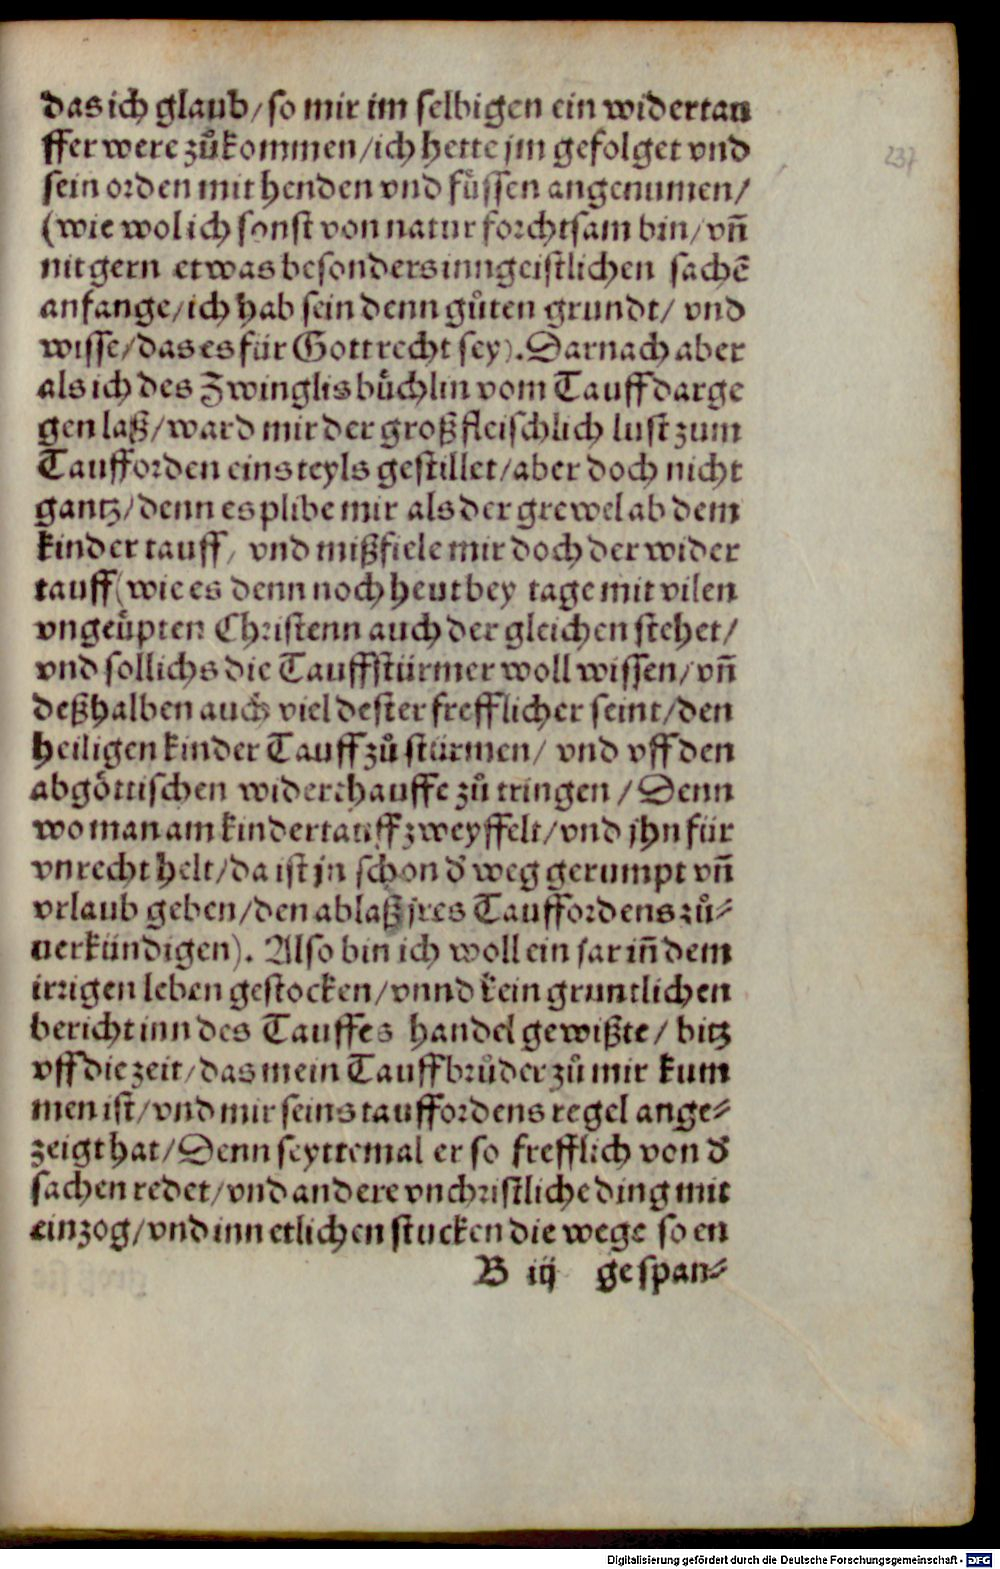 das ich glaub/ so mir im selbigen ein widertau
ffer were zůkommen/ ich hette jm gefolget vnd
sein orden mit henden vnd fůssen angenumen/
(wie wol ich sonst von natur forchtsam bin/ vñ
nit gern etwas besonders inn geistlichen sachē
anfange/ ich hab sein denn gůten grundt/ vnd
wisse/ das es für Gott recht sey). Darnach aber
als ich des Zwinglis bůchlin vom Tauff darge
gen laß/ ward mir der groß fleischlich lust zum
Taufforden eins teyls gestillet/ aber doch nicht
gantz/ denn es plibe mir als der grewel ab dem
kinder tauff/ vnd mißfiele mir doch der wider
tauff (wie es denn noch heut bey tage mit vilen
vngeůpten Christenn auch der gleichen stehet/
vnd sollichs die Tauffstürmer woll wissen/ vñ
deßhalben auch viel dester frefflicher seint/ den
heiligen kinder Tauff zů stürmen/ vnd vff den
abgöttischen widerthauffe zů tringen/ Denn
wo man am kindertauff zweyffelt/ vnd jhn für
vnrecht helt/ da ist jn schon d' weg gerumpt vñ
vrlaub geben/ den ablaß jres Tauffordens zů⸗
uerkündigen). Also bin ich woll ein jar inn dem
irrigen leben gestocken/ vnnd kein gruntlichen
bericht inn des Tauffes handel gewißte/ bitz
vff die zeit/ das mein Tauffbrůder zů mir kum
men ist/ vnd mir seins tauffordens regel ange⸗
zeigt hat/ Denn seyttemal er so frefflich von d'
sachen redet/ vnd andere vnchristliche ding mit
einzog/ vnd inn etlichen stucken die wege so en
B iij gespan⸗
237
Digitalisierung gefördert durch die Deutsche Forschungsgemeinschaft - DFG